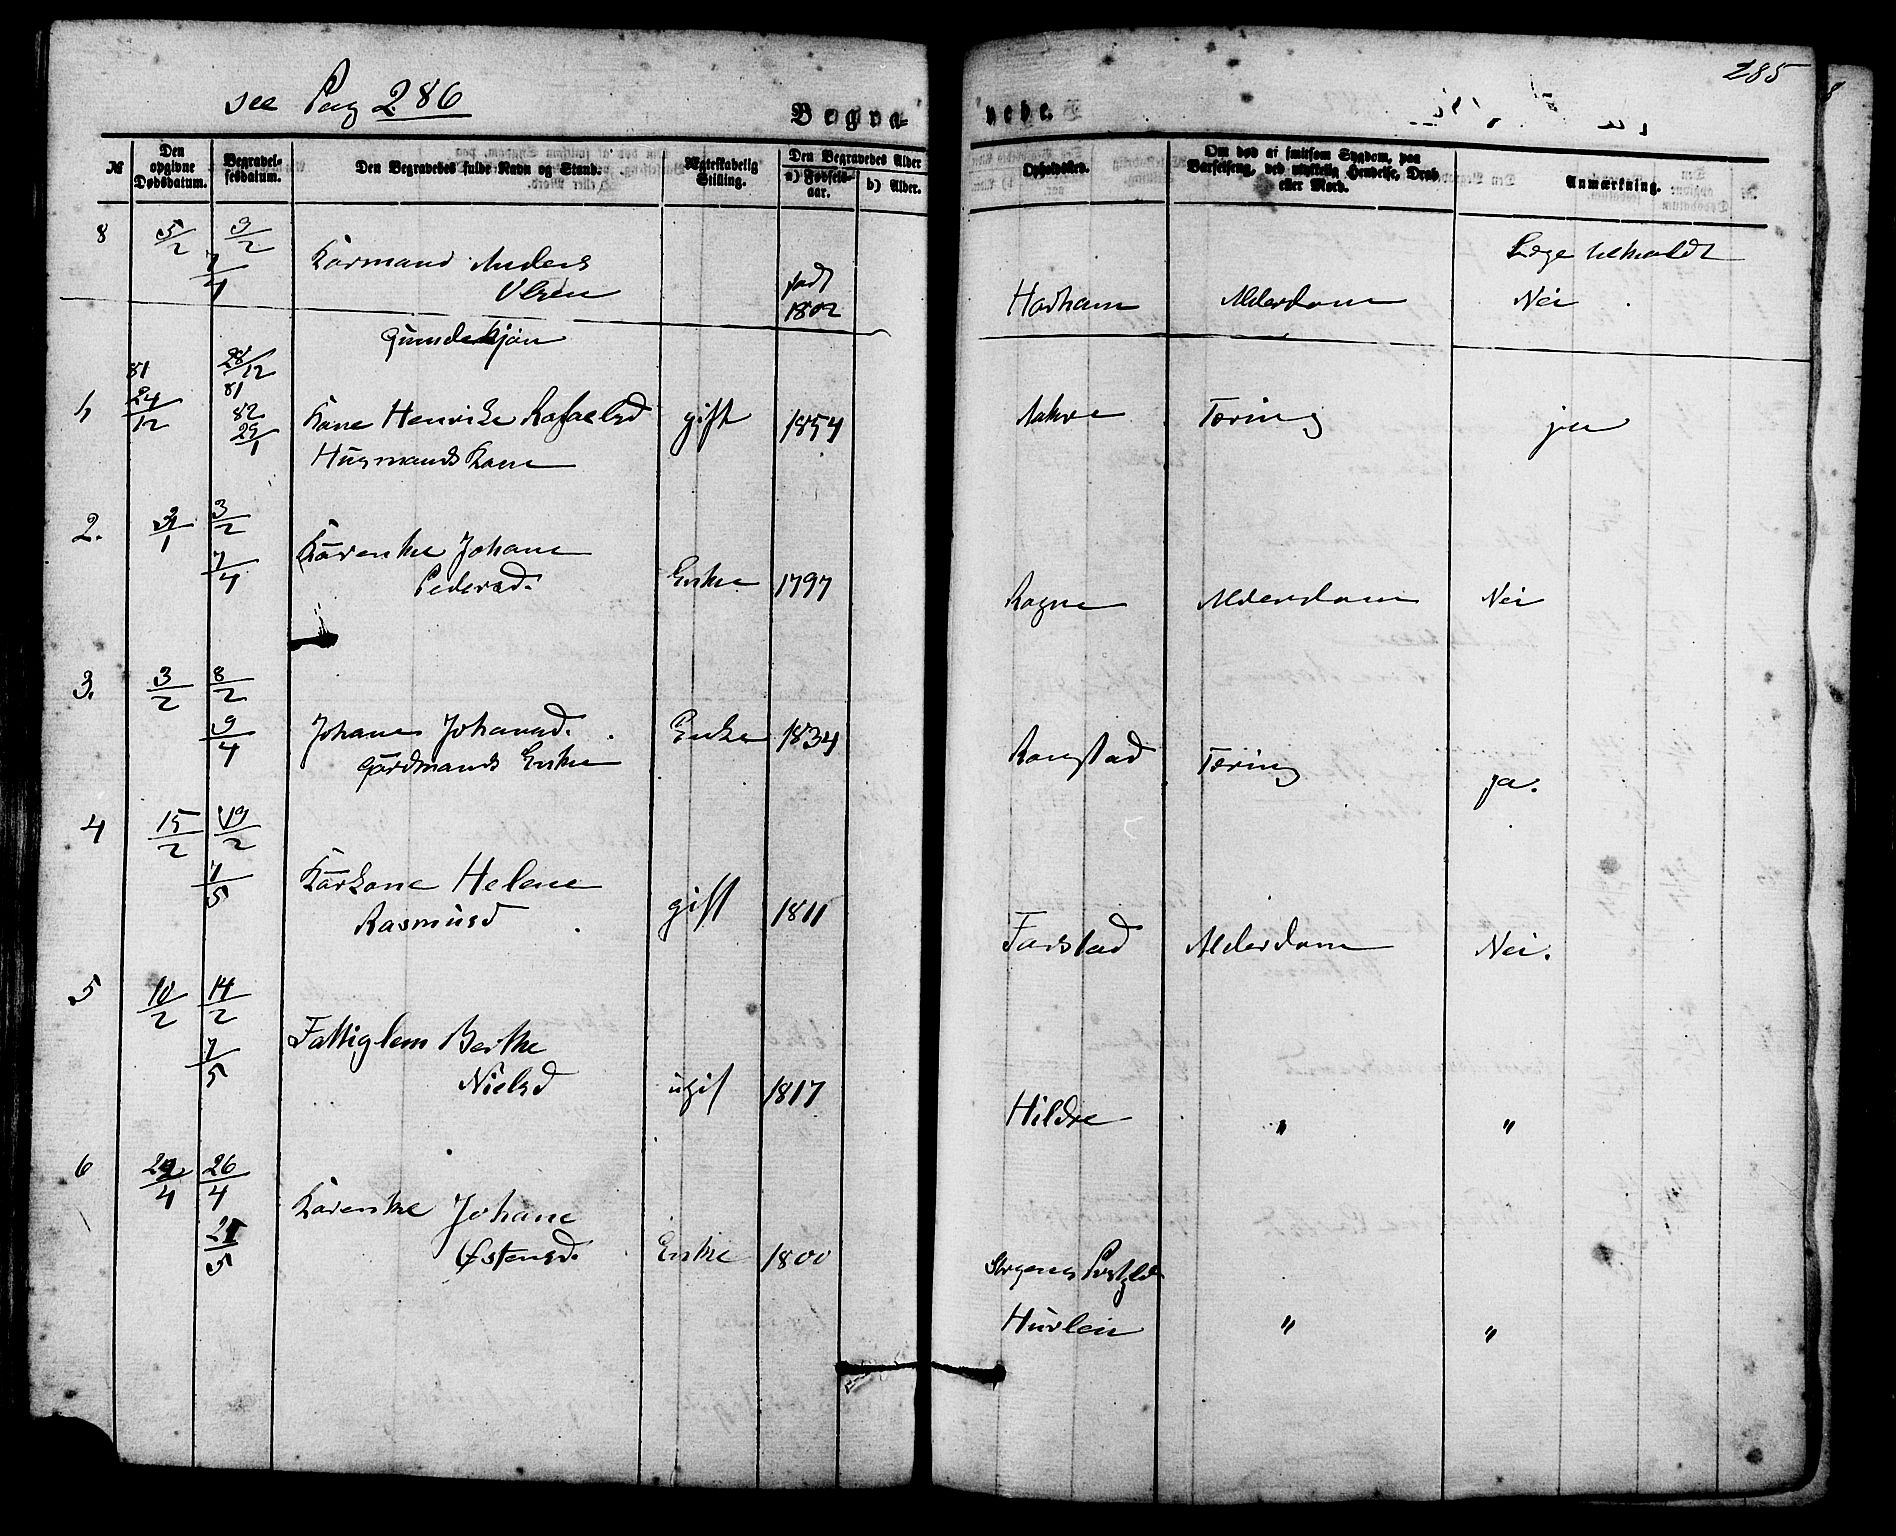 285
see Pag 286
Begravede.
№ Den opgivne Dødsdatum. Begravelsesdatum. Den Begravedes fulde Navn og Stand. Ægteskabelig Stilling. Den Begravedes Alder a) Fødselsaar. b) Alder. Opholdssted. Om død af smitsom Sygdom, paa Barselseng, ved ulykkelig Hendelse, Drab eller Mord. Anmærkning.
8 5/2 3/2 Læge
7/4 Kaarmand Anders
Olsen født 1802 Harham Alderdom Nei
Qvindekjøn
81 28/12 81
1 24/12 82 29/1 Kone Henrike Rafaelsd gift 1854 Aakre Tæring ja
Husmands Kone
2. 31/1 3/2
7/4 Kaarenke Johane
Pedersd. Enke 1797 Rogne Alderdom Nei
3. 3/2 8/2
9/4 Johane Johansd. Enke 1834 Ronstad Tæring ja.
Gaardmands Enke
4 15/2 19/2
7/5 Kaarkone Helene
Rasmusd gift 1811 Farstad Alderdom Nei.
5 10/2 14/2
7/5 Fattiglem Berthe
Nielsd ugif 1817 Hildre " "
6 22/4 26/4
21/5 Kaarenke Johane
Østensd. Enke 1800
Hurlen " "